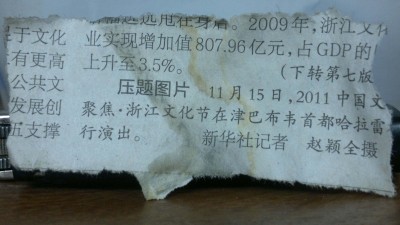 远远甩在身后。2009年,浙江文化
于文化 业实现增加值807.96亿元,占GDP的
有更高 上升至3.5%。 (下转第七版
公共文 压题图片 11月15日,2011中国文
发展创 聚焦·浙江文化节在津巴布韦首都哈拉雷
五支撑 行演出。 新华社记者 赵颖全摄